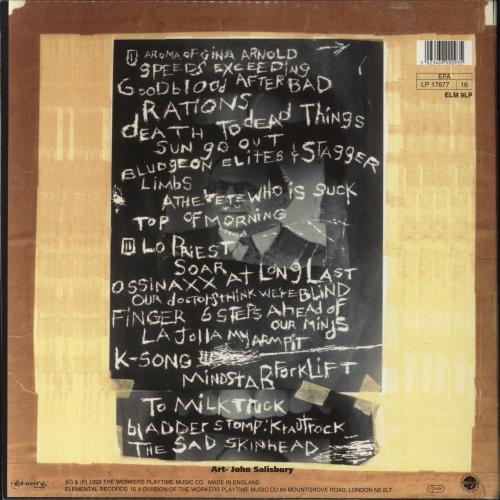 I AROMA OF GINA ARNOLD
SPEEDS EXCEEDING
GOODBLOOD AFTER BAD
RATIONS
DEATH TO DEAD THINGS
SUN GO OUT
BLUDGEON ELITES & STAGGER
LIMBS
ATHEBETE WHO IS SUCK
TOP OF MORNING
II LO PRIEST
SOAR AT LONG LAST
OSSINAXX
OUR DOCTORS THINK WE'RE BLIND
FINGER 6 STEPS AHEAD OF
OUR MINDS
LA JOLLA MY ARMPIT
K-SONG
MINDSTAR FORKLIFT
TO MILKTRUCK
BLADDER STOMP: KRAUTROCK
THE SAD SKINHEAD
EFA
LP 17677 16
ELM 9LP
Art- John Salisbury
(C) & (P) 1993 THE WORKERS PLAYTIME MUSIC CO MADE IN ENGLAND
ELEMENTAL RECORDS IS A DIVISION OF THE WORKERS PLAYTIME MUSIC CO 64 MOUNTGROVE ROAD, LONDON N5 2LT